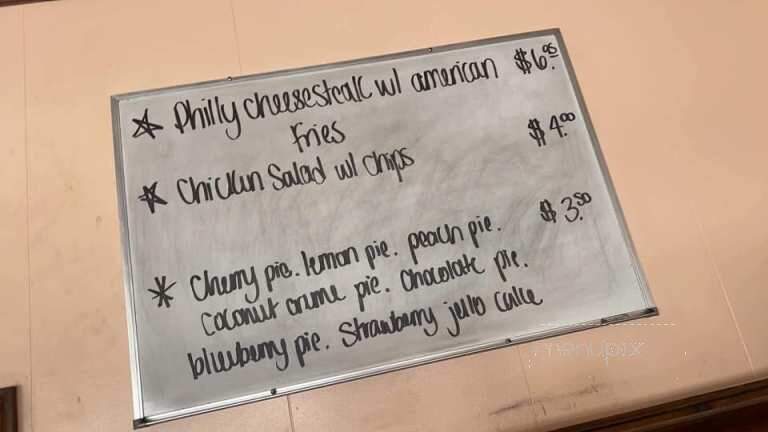 Philly cheesesteak w/ american $6.95
fries
Chicken Salad w/ chips $4.00
Cherry pie. lemon pie. peach pie. $3.50
Coconut creme pie. Chocolate pie.
blueberry pie. Strawberry jello cake
menupix